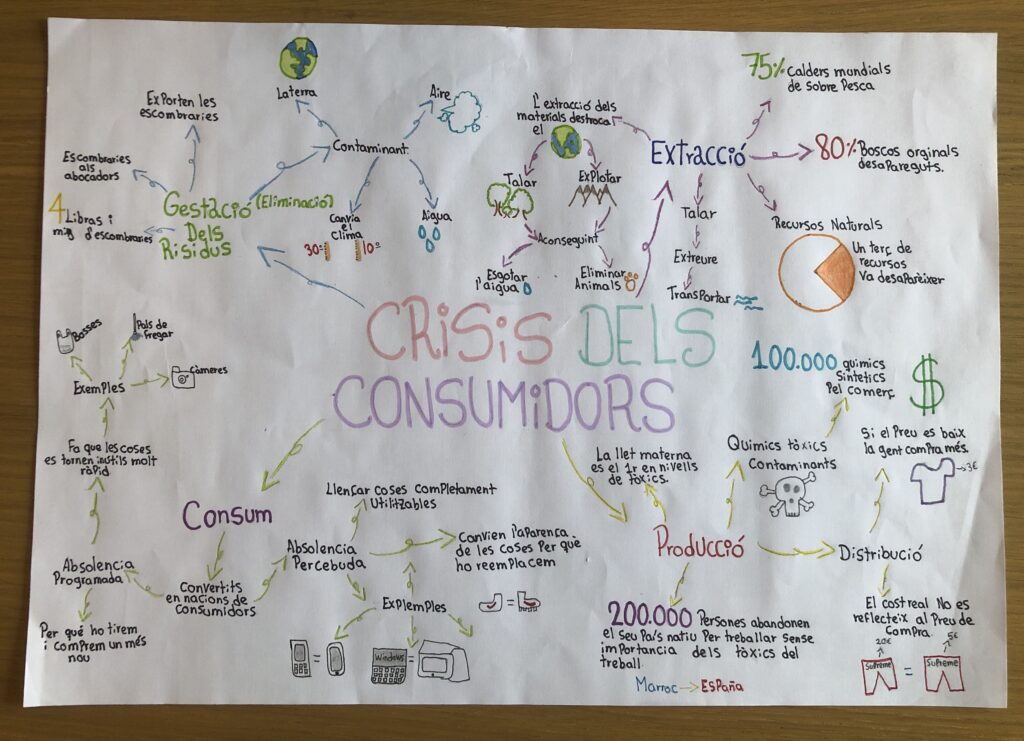 CRiSiS DELS
CONSUMiDORS
Gestació (Eliminació)
Dels
Risidus
Exporten les
escombraries
Escombraries
als
abocadors
4 Libras i
mig d'escombraries
Contaminant
La terra
Aire
Canvia
el
Clima
30°
10°
Aigua
Extracció
L'extracció dels
materials destrossa
el
Talar
Explotar
Aconseguint
Esgotar
l'aigua
Eliminar
Animals
Talar
Extreure
Transportar
75% Calders mundials
de sobre Pesca
80% Boscos orginals
desapareguts.
Recursos Naturals
Un terç de
recursos
Va desaparèixer
Consum
Convertits
en nacions de
consumidors
Absolencia
Programada
Per què ho tirem
i comprem un més
nou
Fa que les coses
es tornen inutils molt
ràpid
Exemples
Bosses
Pals de
fregar
Càmeres
Absolencia
Percebuda
Llençar coses completament
Utilitzables
Convien l'aparença
de les coses per què
ho reemplacem
Explemples
=
Windows
=
=
Producció
La llet materna
es el 1r en nivells
de tòxics.
Quimics tòxics
Contaminants
100.000 quimics
Sintetics
Pel comerç
200.000 Persones abandonen
el seu País natiu Per treballar sense
importancia dels tòxics del
treball
Marroc → ESPaña
Distribució
Si el Preu es baix
la gent compra més.
$
3€
El cost real No es
reflecteix al Preu de
compra.
20€
5€
Supreme
=
Supreme